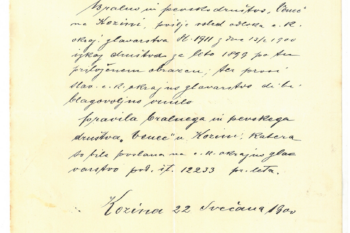 Bralno in pevsko društvo "Venec"
na Kozini, pošilja vsled odloka c. k.
okraj. glavarstva št. 1911 z dne 12/2 1900
izkaz društva za leto 1899 po tu
priloženem obrazcu, ter prosi
slav. c. k. okrajno glavarstvo da bi
blagovoljno
Pravila bralnega in pevskega
društva "Venec" v Kozini, katera
so bila poslana na c. k. okrajno glavarstvo
pod št. 12233 pr. leta.
Kozina 22 Svečana 1900